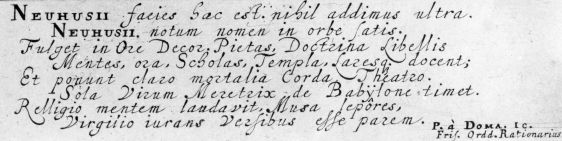 NEUHUSII facies hæc est: nihil addimus ultra.
NEUHUSII, notum nomen in orbe satis.
Fulget in Ore Decor, Pietas, Doctrina Libellis
Mentes, ora, Scholas, Templa, Laresq. docent;
Et ponunt claro mortalia Corda Theatro.
Sola Virum Meretrix de Babÿlone timet.
Relligio mentem laudavit, Musa lepôres,
Virgilio iurans Versibus esse parem.
P. à DOMA. IC.
Fris. Ordd. Rationarius